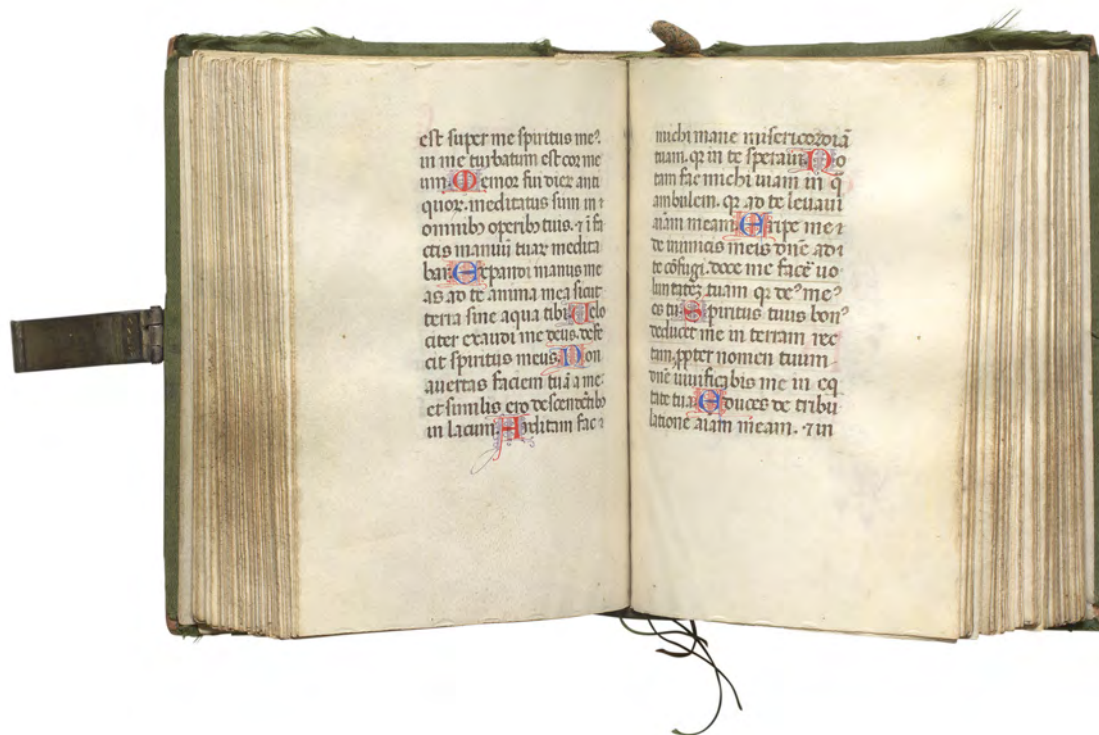 est super me spiritus meꝰ.
in me turbatum est cor me
um. Memor fui dieꝝ anti
quoꝝ. meditatus sum in
omnibꝰ operibꝰ tuis. ⁊ ĩ fa
ctis manuũ tuaꝝ medita
baꝛ. Expandi manus me
as ad te anima mea sicut
terra sine aqua tibi. Velo
citer exaudi me deus. defe
cit spiritus meus. Non
auertas faciem tuã a me.
et similis ero descendẽtibꝰ
in lacum. Auditam fac
michi mane misericordiã
tuam. qꝛ in te speraui. No
tam fac michi uiam in q̃
ambulem. qꝛ ad te leuaui
aĩam meam. Eripe me
de inimicis meis dñe ad
te cõfugi. doce me facẽ uo
luntatẽ tuam qꝛ deꝰ meꝰ
es tu. Spiritus tuus bonꝰ
deducet me in terram rec
tam. ꝓpter nomen tuum
dñe uiuificabis me in eq
tate tua. Educes de tribu
latione aĩam meam. ⁊ in